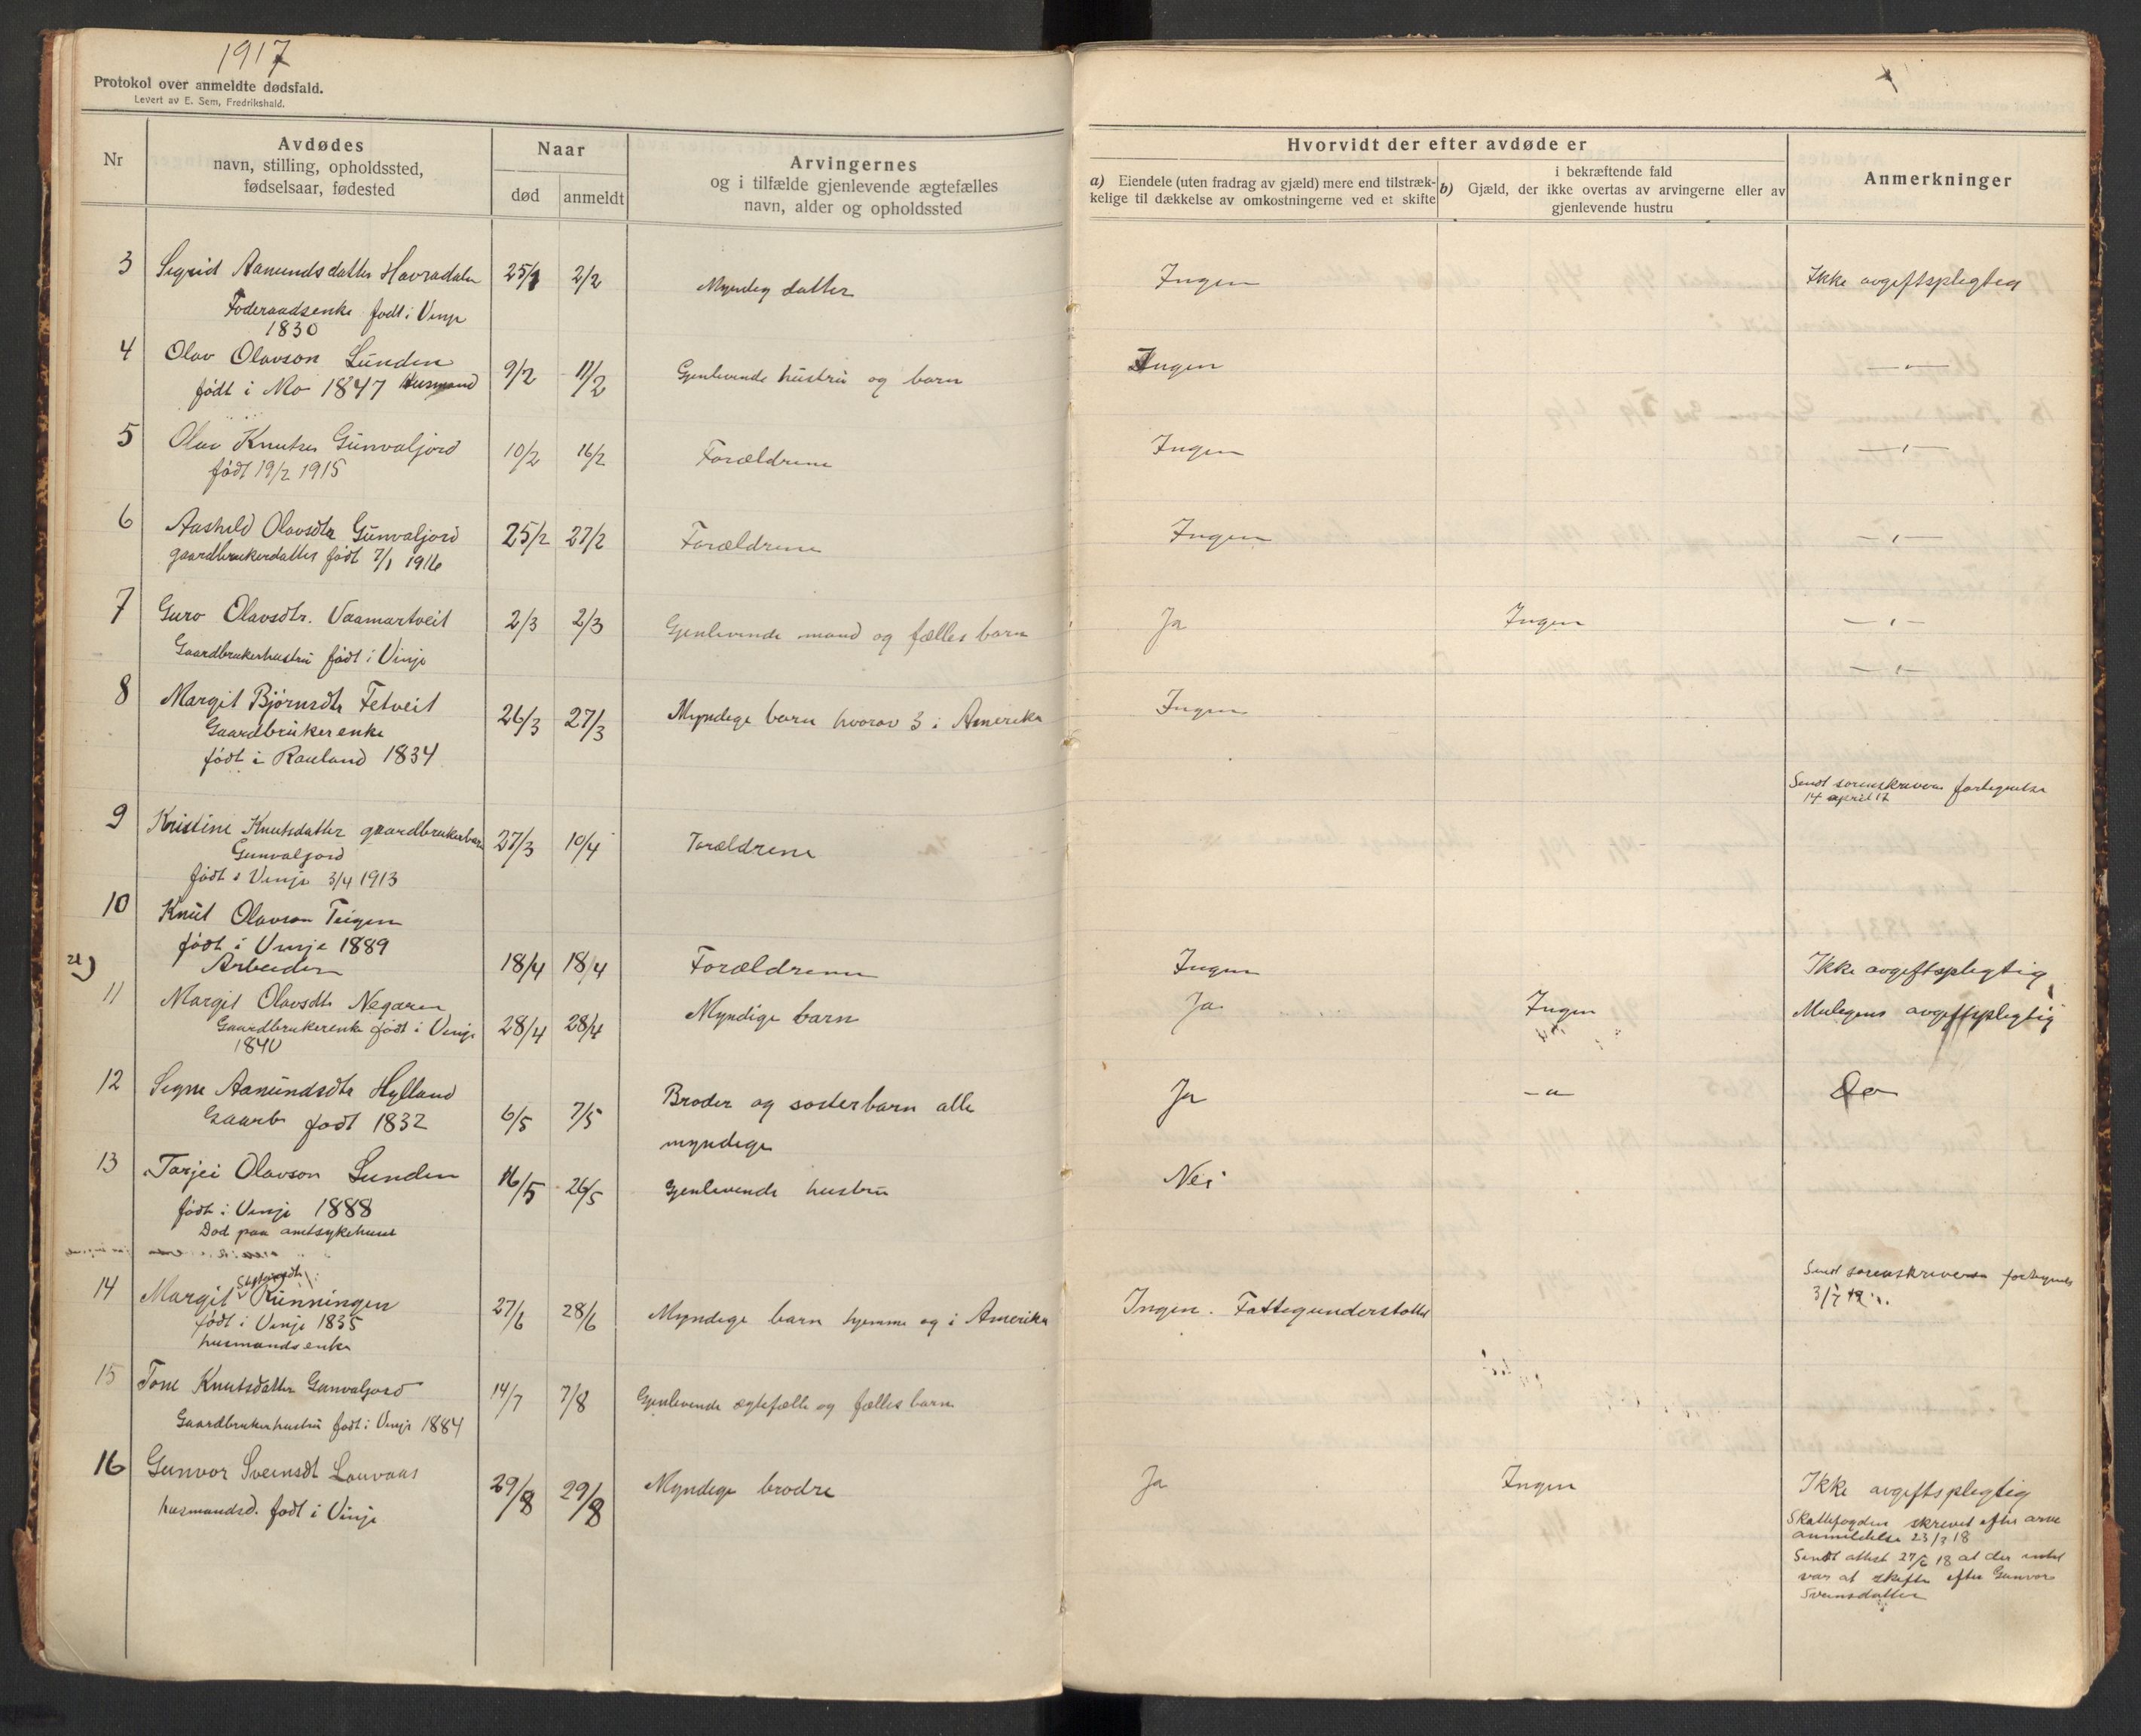 1917
Protokol over anmeldte dødsfald.
Levert av E. Sem, Fredrikshald.
Nr
Avdødes
navn, stilling, opholdssted,
fødselsaar, fødested
Naar
død
anmeldt
Arvingernes
og i tilfælde gjenlevende ægtefælles
navn, alder og opholdssted
Hvorvidt der efter avdøde er
a) Eiendele (uten fradrag av gjæld) mere end tilstræk-
kelige til dækkelse av omkostningerne ved et skifte
b)
i bekræftende fald
Gjæld, der ikke overtas av arvingerne eller av
gjenlevende hustru
Anmerkninger
3 Sigrid Aamundsdatter Havradalen 25/1 2/2 Myndig datter Ingen Ikke avgiftspligtig
Føderaadsenke født i Vinje
1830
4 Olav Olavson Lunden 9/2 11/2 Gjenlevende hustru og barn Ingen —"—
født i Mo 1847 Husmand
5 Olav Knutsen Gunvaljord 10/2 16/2 Forældrene Ingen —"—
født 19/2 1915
6 Aashild Olavsdtr Gunvaljord 25/2 27/2 Forældrene Ingen —"—
gaardbrukerdatter født 7/1 1916
7 Guro Olavsdtr. Vaamartveit 2/3 2/3 Gjenlevende mand og fælles barn Ja Ingen —"—
Gaardbrukerhustru født i Vinje
—"—
8 Margit Bjørnsdtr Fetveit 26/3 27/3 Myndige barn hvorav 3 i Amerika Ingen
Gaardbrukerenke
født i Rauland 1834
Sendt sorenskriveren fortegnelse
14 april 17
9 Kristine Knutsdatter gaardbrukerbarn 27/3 10/4 Forældrene
Gunvaljord
født i Vinje 3/4 1913
10 Knut Olavson Teigen
født i Vinje 1889
Arbeider 18/4 18/4 Forældrene Ingen Ikke avgiftspligtig
11 Margit Olavsdtr Negaren 28/4 28/4 Myndige barn Ja Ingen Muligens avgiftspligtig
Gaardbrukerenke født i Vinje
1840
12 Signe Aamundsdtr Hylland 6/5 7/5 Broder og søsterbarn alle Ja —"— Do
Gaarb født 1832
myndige
13 Tarjei Olavson Lunden 16/5 26/5 Gjenlevende hustru Nei
født i Vinje 1888
Død paa amtsykehuset
Sendt sorenskriveren fortegnelse
14 Margit Runningen 27/6 28/6 Myndige barn hjemme og i Amerika Ingen. Fattigunderstøttet
født i Vinje 1835
husmandsenke
15 Tone Knutsdatter Gunvaljord 14/7 7/8 Gjenlevende egtefælle og fælles barn
Gaardbrukerhustru født i Vinje 1884
16 Gunvor Sveinsdt Lauvaas 29/8 29/8 Myndige brødre Ja Ingen Ikke avgiftspligtig
husmandsd. født i Vinje
Skattefogden skrevet efter arve
anmeldelse 23/3 18
Sendt attest 27/6 18 at der intet
var at skifte efter Gunvor
Sveinsdatter